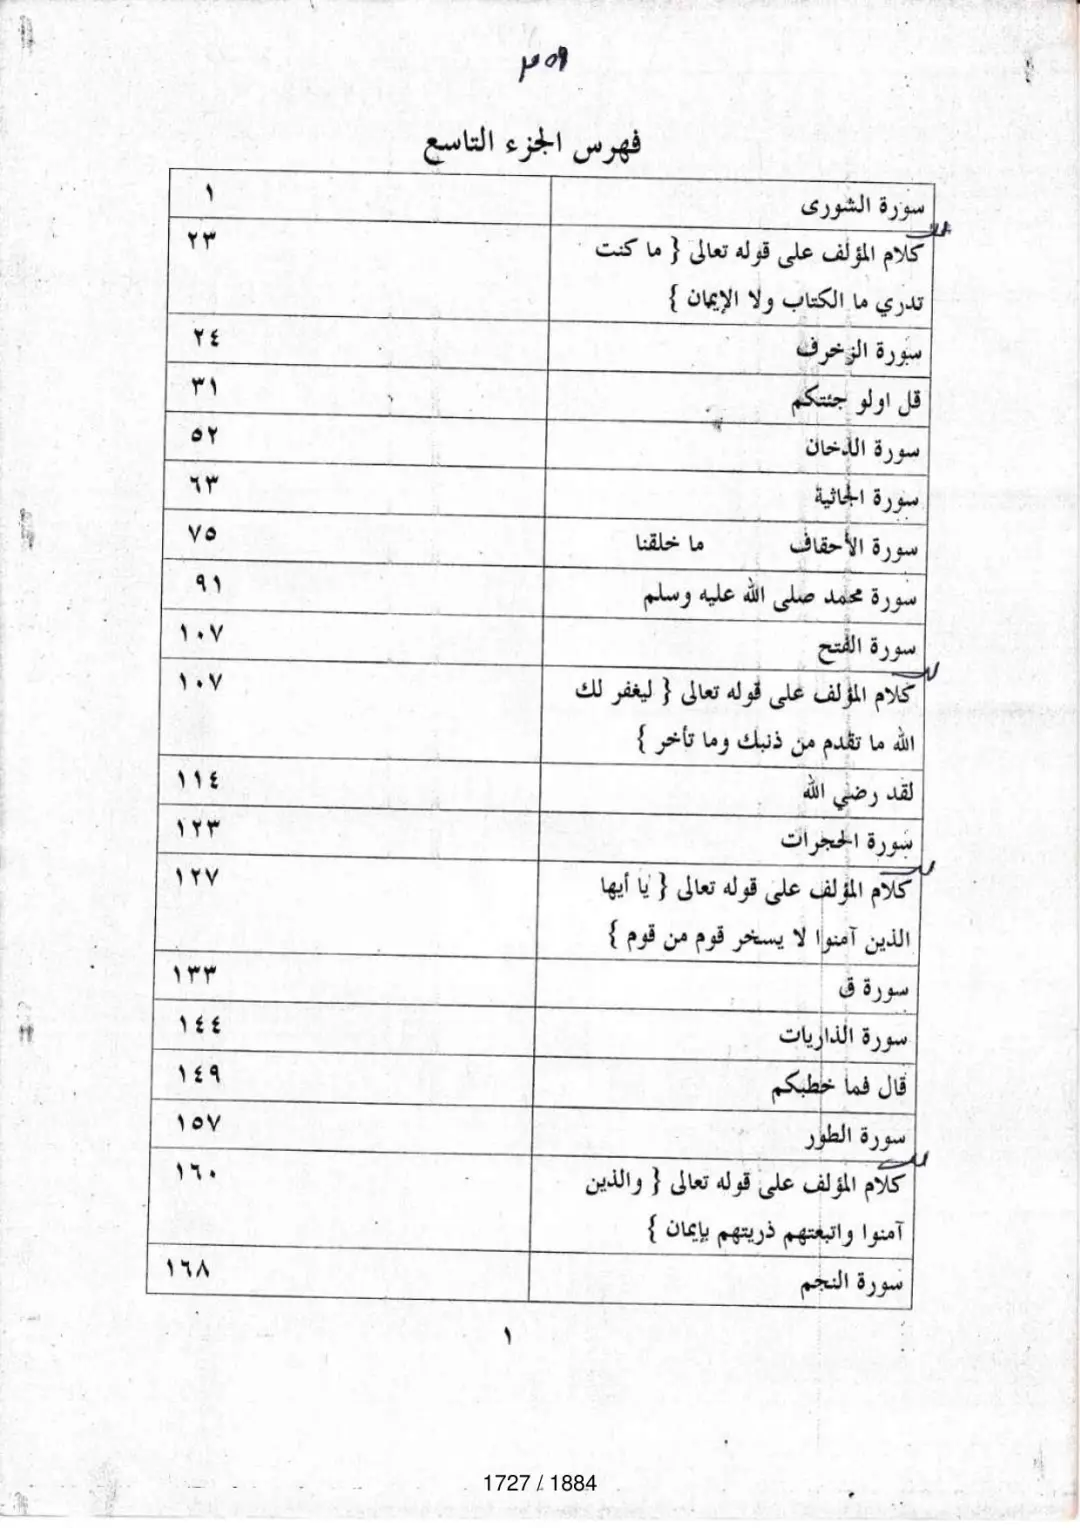 ٣٥٩
فهرس الجزء التاسع
سورة الشورى ١
كلام المؤلف على قوله تعالى { ما كنت ٢٣
تدري ما الكتاب ولا الإيمان }
سورة الزخرف ٢٤
قل اولو جئتكم ٣١
سورة الدخان ٥٢
سورة الجاثية ٦٣
سورة الأحقاف ما خلقنا ٧٥
سورة محمد صلى الله عليه وسلم ٩١
سورة الفتح ١٠٧
كلام المؤلف على قوله تعالى { ليغفر لك ١٠٧
الله ما تقدم من ذنبك وما تأخر }
لقد رضي الله ١١٤
سورة الحجرات ١٢٣
كلام المؤلف على قوله تعالى { يا أيها ١٢٧
الذين آمنوا لا يسخر قوم من قوم }
سورة ق ١٣٣
سورة الذاريات ١٤٤
قال فما خطبكم ١٤٩
سورة الطور ١٥٧
كلام المؤلف على قوله تعالى { والذين ١٦٠
آمنوا واتبعتهم ذريتهم بإيمان }
سورة النجم ١٦٨
١
1727 / 1884